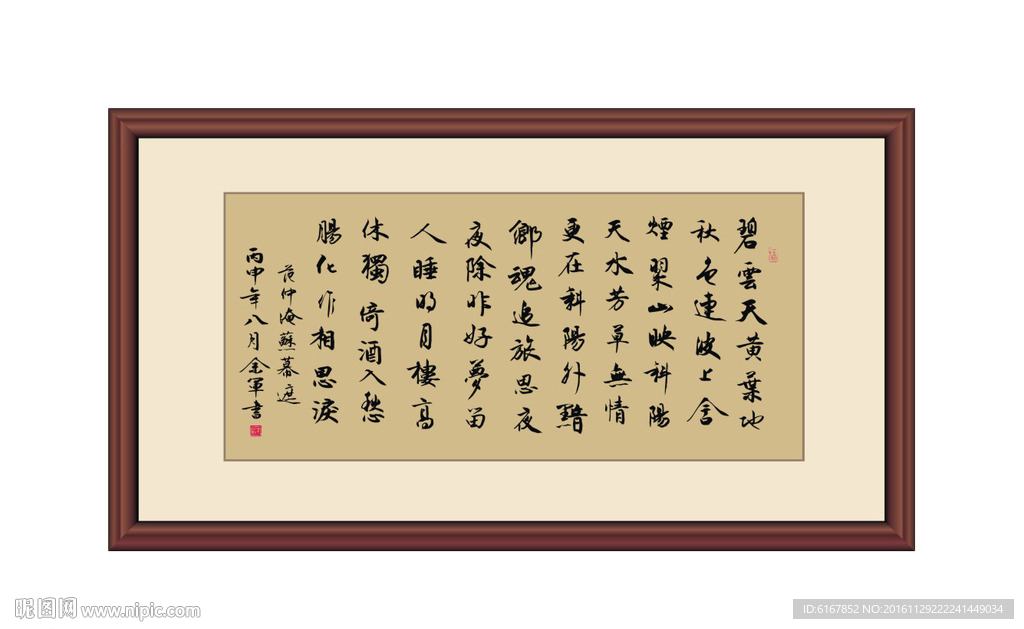 碧雲天黃葉地
秋色連波上含
煙翠山映斜陽
天水芳草無情
更在斜陽外黯
鄉魂追旅思夜
夜除非好夢留
人睡明月樓高
休獨倚酒入愁
腸化作相思淚
范仲淹蘇幕遮
丙申年八月金軍書
昵图网 www.nipic.com
ID:6167852 NO:20161129222241449034